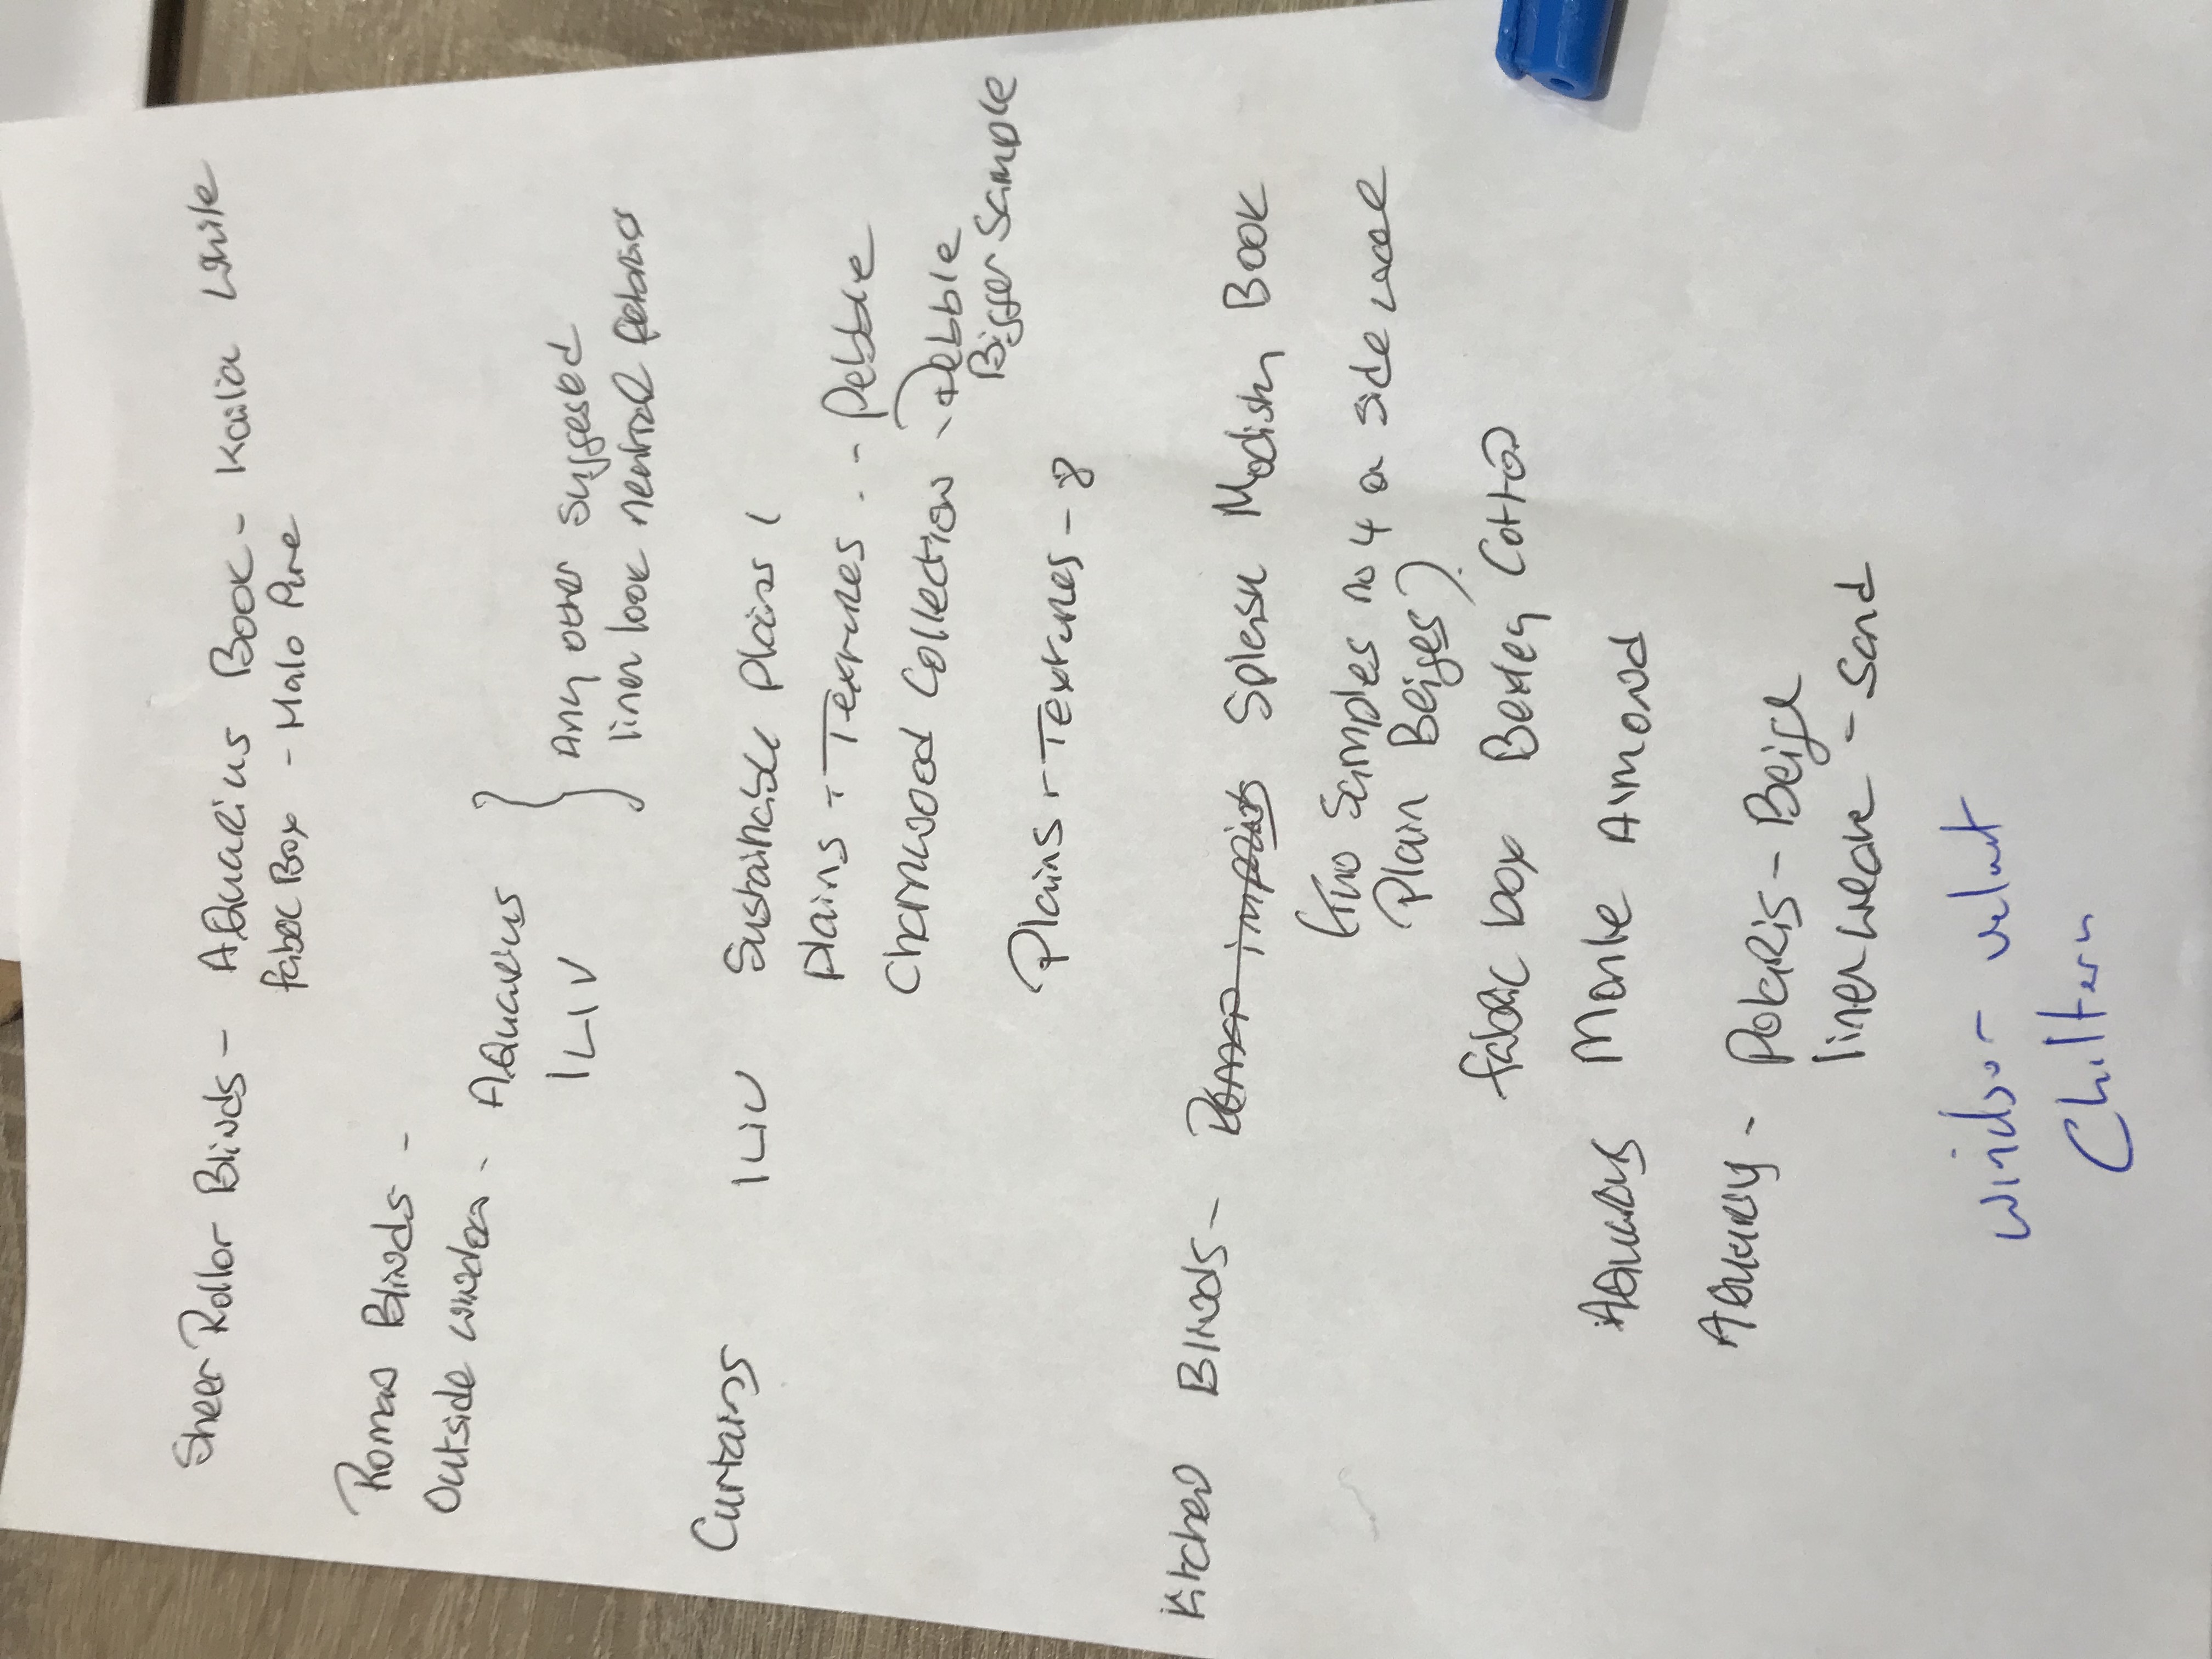 Sheer Rollor Blinds - AQuarius Book - Kailia White
fabric Box - Halo Pure
Roman Blinds -
Outside window - AQuarius
ILIV
} Any other suggested
linen look neutral fabrics
Curtains ILIV Sustainable Plains 1
Plains + Textures - Pebble
Charnwood Collection - Pebble
Bigger Sample
Plains + Textures - 8
Kitchen Blinds - Splash Modish Book
(two samples no 4 on side
Plain Beiges).
fabric box Bexley Cotton
AQuarius Manle Almond
Polaris - Beige
linen weave - Sand
Windsor - velvet
Chiltern